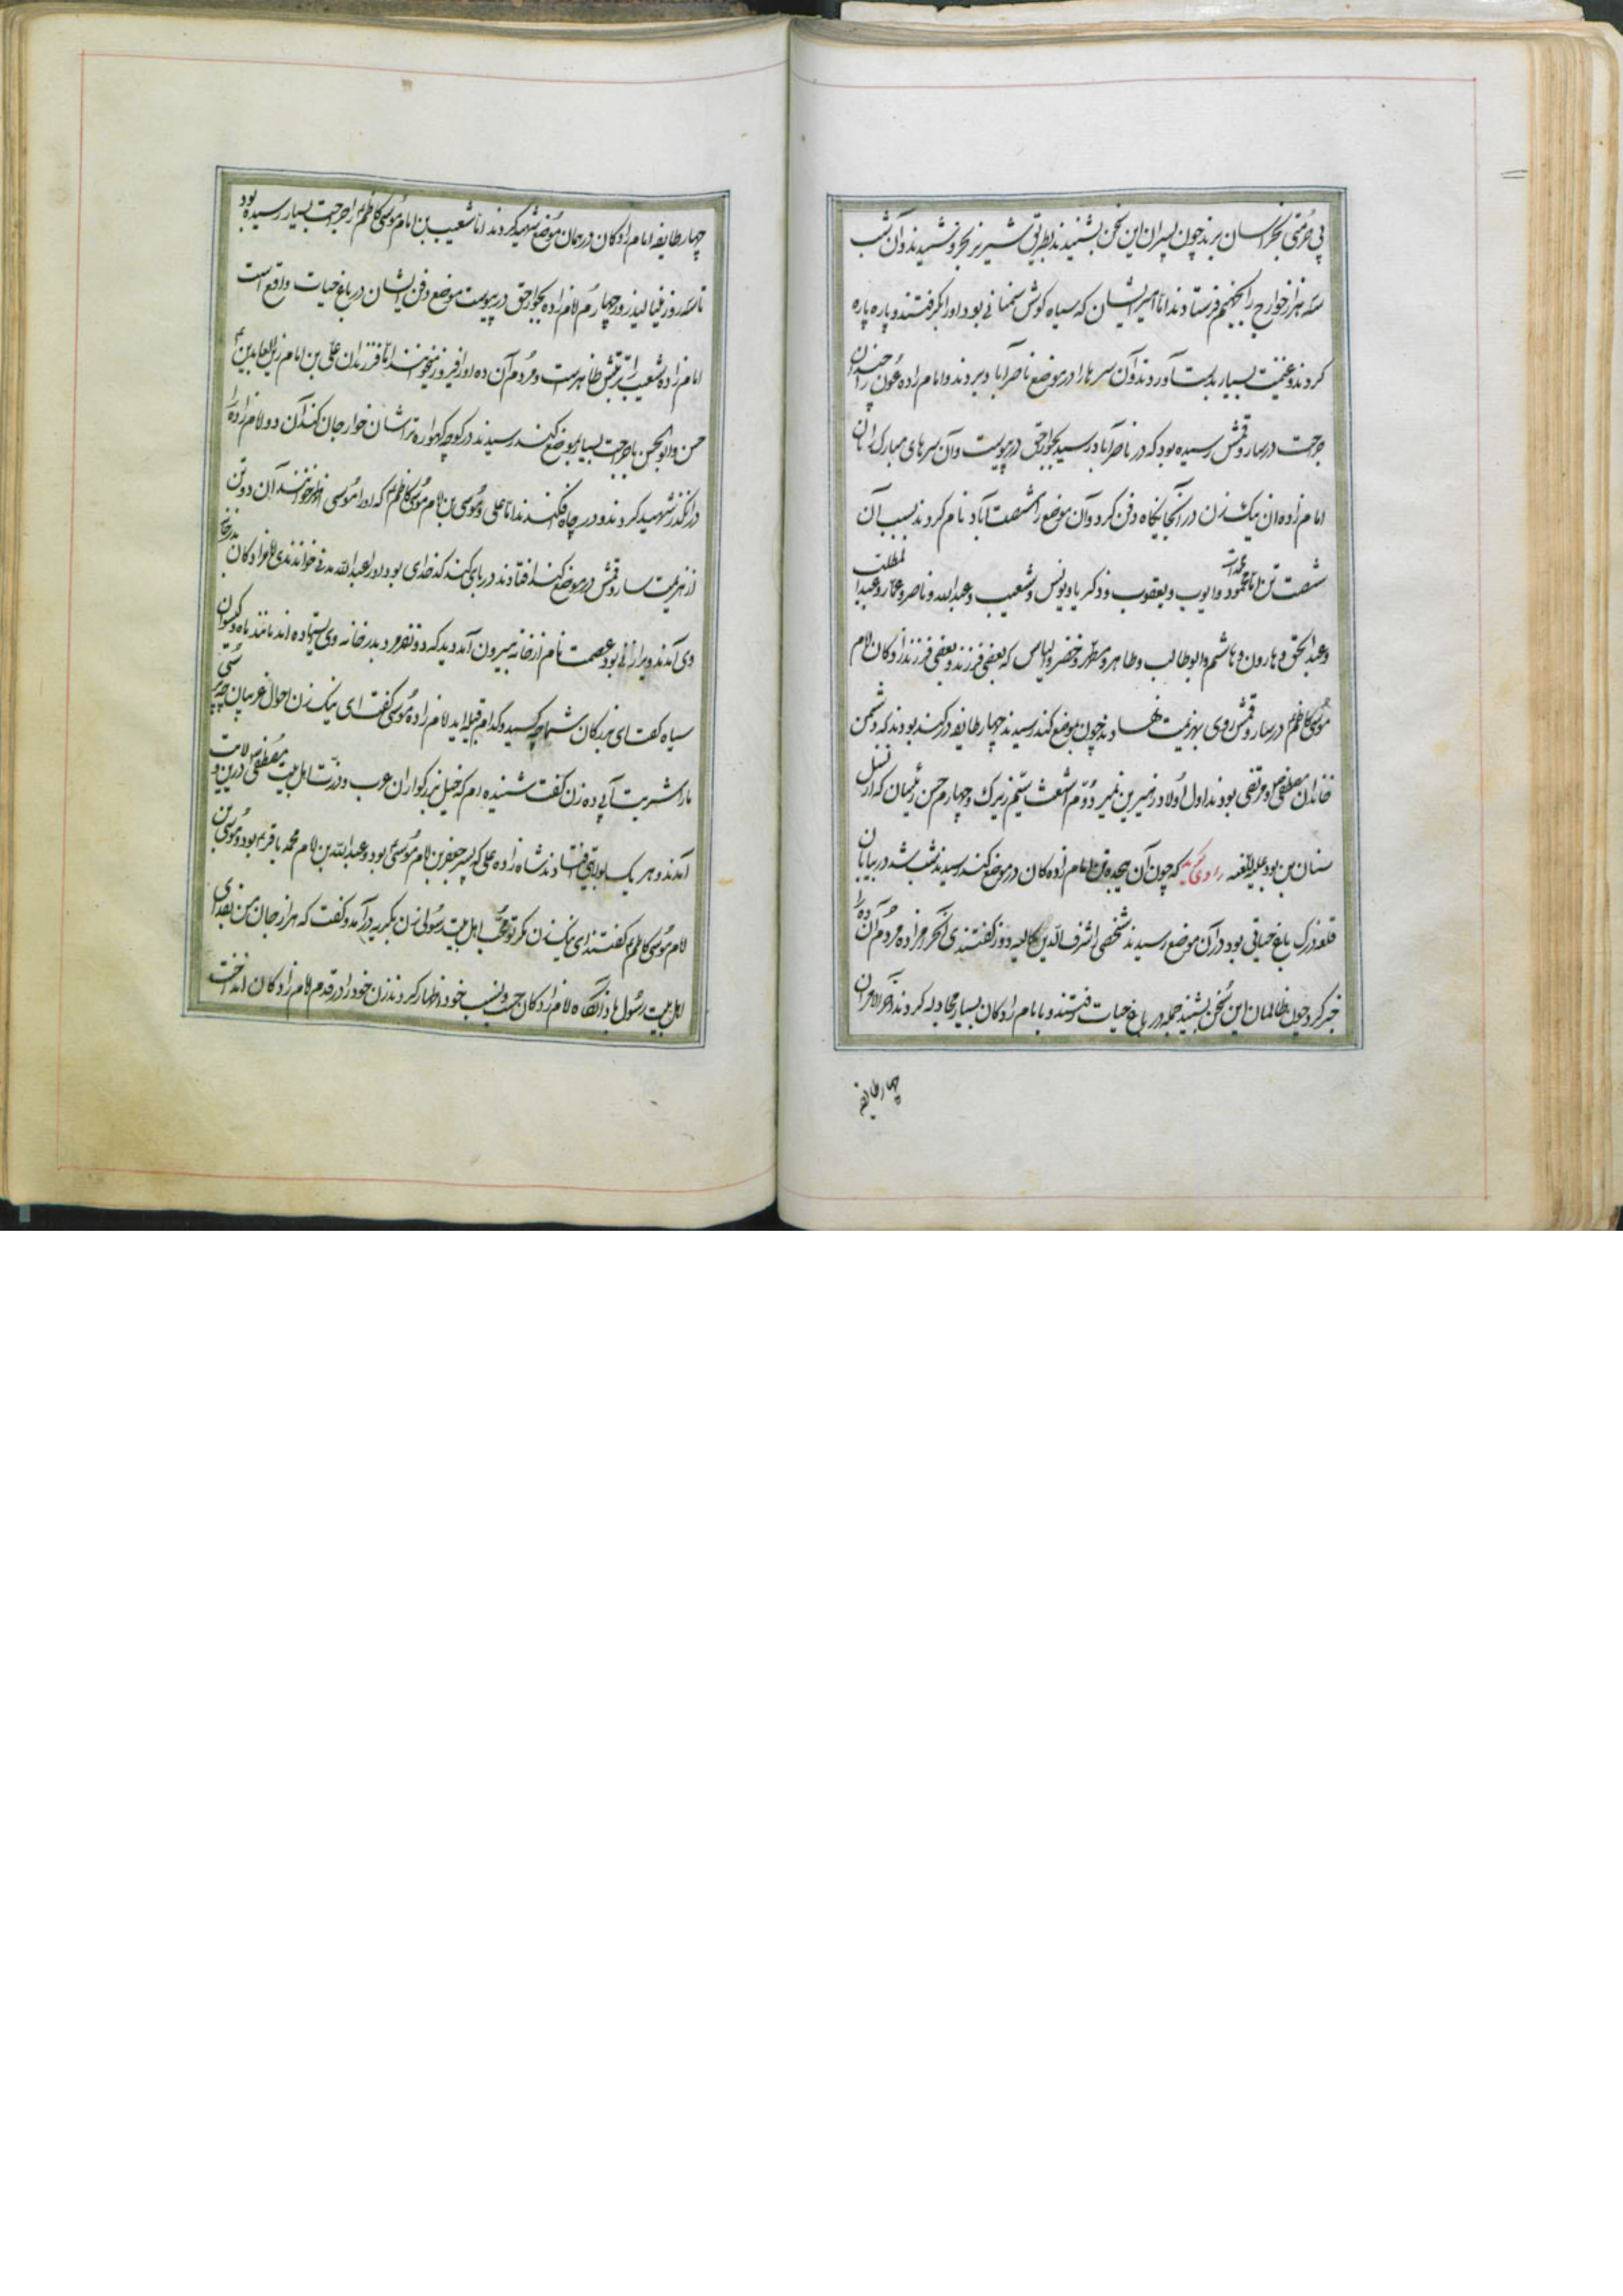 بی حرمتی بخراسان برند چون پسران این سخن بشنیدند بطریق شیر نر بخروشیدند و آن شب
سه هزار خوارج را بجهنم فرستادند اما امیر ایشان که سیاه گوش سمنانی بود او را بگرفتند و پاره پاره
کردند و غنیمت بسیار بدست آوردند و آن سرها را در موضع ناصرآباد بردند و امام زاده عون را چندان
جراحت در ساروقمش رسیده بود که در ناصرآباد رسید بجوار حق در پیوست و آن سرهای مبارک را با آن
امام زاده آن نیک زن در آنجایگاه دفن کرد و آن موضع را شصت آباد نام کردند بسبب آن
شصت تن اما محمود و ایوب و یعقوب و ذکریا و یونس و شعیب و عبدالله و ناصر و عمار و عبدالمطلب
و عبدالحق و هارون و هاشم و ابوطالب و طاهر و مطهر و خضر و الیاس که بعضی فرزند و بعضی فرزند زادکان امام
موسی کاظم در ساروقمش روی بهزیمت نهادند چون بموضع کند رسیدند چهار طایفه در کند بودند که دشمن
خاندان مصطفی و مرتضی بودند اول اولاد زهیر بن نمیر دوم اشعث سیم زیرک و چهارم حسن رئیسان که از نسل
سنان بن بود علیه اللعنه راوی گوید که چون آن هیجده تن امام زاده کان در موضع کند رسیدند شب شد در بیابان
قلعه زرک باغ حیاتی بود در آن موضع رسیدند شخصی اشرف الدین کاله دوز گفتندی آن حرامزاده مردم آن ده را
خبر کرد چون ظالمان این سخن بشنیدند جمله در باغ حیات رفتند و با امام زادکان بسیار مجادله کردند آخر الامر آن
چهار طایفه
چهار طایفه امام زادکان در همان موضع شهید کردند اما شعیب بن امام موسی کاظم را جراحت بسیار رسیده بود
تا سه روز مینالید روز چهارم امام زاده بجوار حق در پیوست موضع دفن ایشان در باغ حیات واقع است
امام زاده شعیب تربتش ظاهرست و مردم آن ده او را فیروز میخوانند اما فرزندان علی بن امام زین العابدین
حسن و ابوالحسن با جراحت بسیار بموضع کند رسیدند در کوچه کهواره تراشان خوارجان کند آن دو امام زاده را
در آن گذر شهید کردند و در چاه فکندند اما علی و موسی بن امام موسی کاظم که او را موسی خوانند آن دو تن
از هزیمت ساروقمش در موضع کند افتادند در پای کند کدخدای بود او را عبدالله مدنی خواندندی امام زادکان بدر خانه
وی آمدند ویرا زنی بود عصمت نام از خانه بیرون آمد دید که دو نفر مرد بدر خانه وی ایستاده اند مانند ماه و گیسوان
سیاه گفت ای بزرکان شما چه کسید و کدام قبیله اید امام زاده موسی گفت ای نیک زن احوال غریبان چه پرسی
ما را شربت آبی ده زن گفت شنیده ام که خیل بزرگواران عرب و ذریت اهل بیت مصطفی درین ولایت
آمدند و هر یک بولایتی افتادند شاه زاده علی که پسر جعفر بن امام موسی بود و عبدالله بن امام محمد باقر بود و موسی بن
امام موسی کاظم گفتند ای نیک زن مگر تو محب اهل بیت رسولی زن بگریه درآمد و گفت که هزار جان من بفدای
اهل بیت رسول باد آنگاه امام زادکان حسب و نسب خود اظهار کردند زن خود را در قدم امام زادکان انداخت